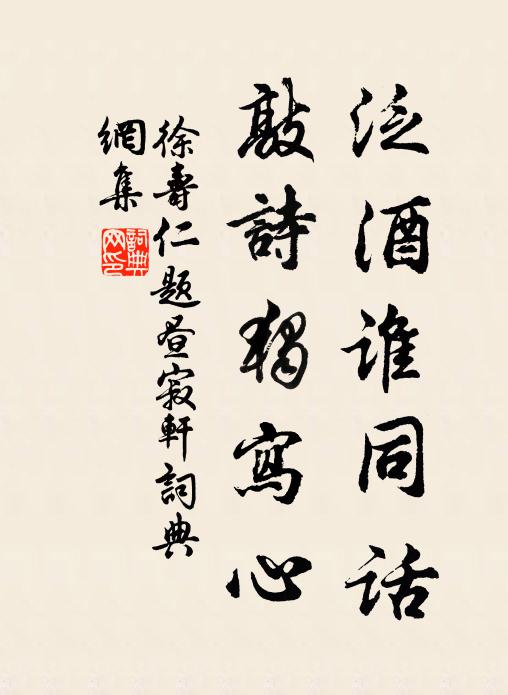 泛酒誰同話
敲詩獨寫心
徐壽仁題昼寂軒詞典
網集
詞典
网印